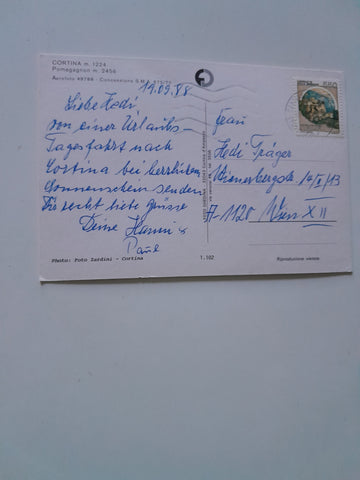 CORTINA m. 1224
Pomagagnon m. 2456
Aerofoto 49766 - Concessione S.M.A.
19.09.88
Liebe Hedi
von einer Urlaubs-
Tagesfahrt nach
Cortina bei herrlichem
Sonnenschein senden
wir recht liebe Grüsse
Deine Hanni &
Frau
Hedi Träger
A-1120 Wien XII
Photo: Foto Zardini - Cortina
1.102
Riproduzione vietata